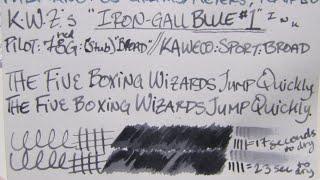 K.W.Z's "IRON-GALL BLUE #1" Ink
PILOT: 78G: (Stub) "BROAD" // KAWECO: SPORT: BROAD
THE FIVE BOXING WIZARDS JUMP QUICKLY.
THE FIVE BOXING WIZARDS JUMP QUICKLY.
= 17 seconds to dry
= 23 sec to dry